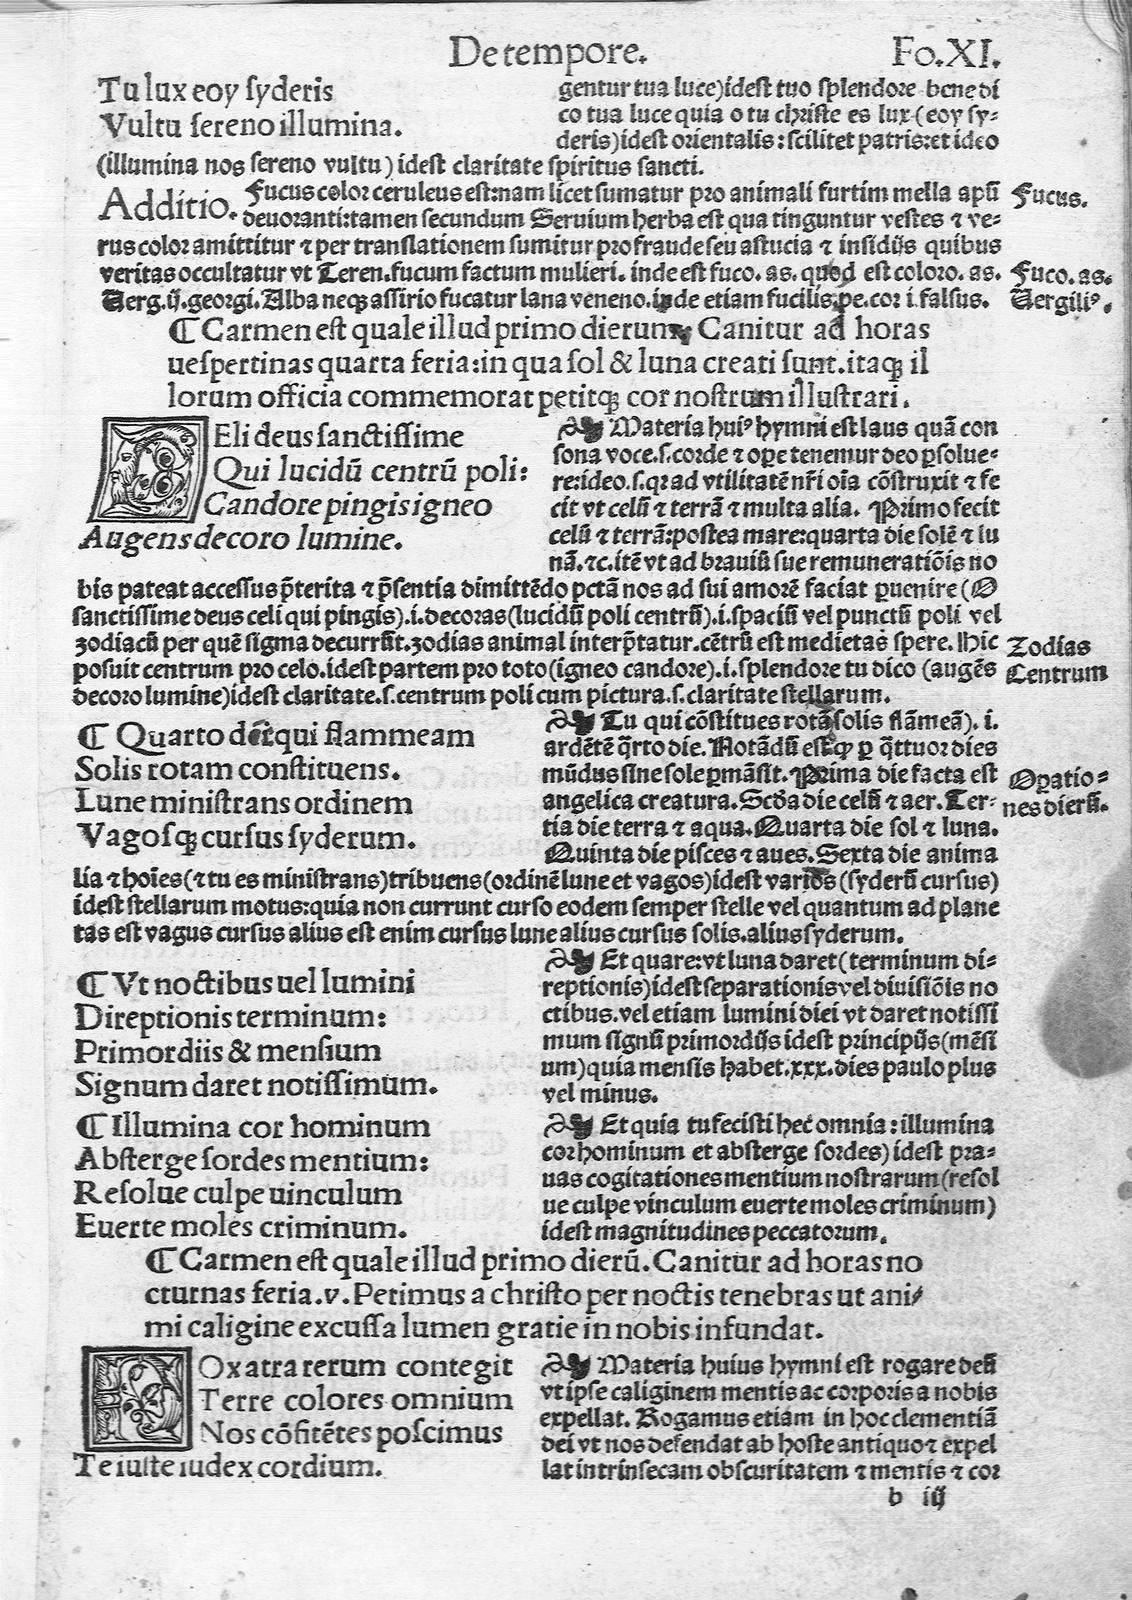 De tempore. Fo.XI.
Tu lux eoy syderis
Vultu sereno illumina.
gentur tua luce) idest tuo splendore benedi
co tua luce quia o tu christe es lux (eoy sy-
deris) idest orientalis: scilitet patris: et ideo
(illumina nos sereno vultu) idest claritate spiritus sancti.
Additio. Fucus color ceruleus est: nam licet sumatur pro animali furtim mella apũ
deuoranti: tamen secundum Seruium herba est qua tinguntur vestes ⁊ ve-
rus color amittitur ⁊ per translationem sumitur pro fraude seu astucia ⁊ insidijs quibus
veritas occultatur vt Teren. fucum factum mulieri. inde est fuco. as. quod est coloro. as.
Uerg. ij. georgi. Alba neqꝫ assirio fucatur lana veneno. inde etiam fucilis pe. cor i falsus.
Fucus.
Fuco. as.
Uergiliꝰ.
¶ Carmen est quale illud primo dierum. Canitur ad horas
uespertinas quarta feria: in qua sol & luna creati sunt. itaqꝫ il
lorum officia commemorat petitqꝫ cor nostrum illustrari.
CEli deus sanctissime
Qui lucidũ centrũ poli:
Candore pingis igneo
Augens decoro lumine.
Materia huiꝰ hymni est laus quã con
sona voce .s. corde ⁊ ope tenemur deo psolue-
re: ideo .s. qꝛ ad vtilitatẽ nr̃i oĩa cõstruxit ⁊ fe
cit vt celũ ⁊ terrã ⁊ multa alia. Primo fecit
celũ ⁊ terrã: postea mare: quarta die solẽ ⁊ lu
nã. ⁊c. itẽ vt ad brauiũ sue remuneratiõis no
bis pateat accessus p̃terita ⁊ p̃sentia dimittẽdo pctã nos ad sui amorẽ faciat puenire (O
sanctissime deus celi qui pingis) .i. decoras (lucidũ poli centrũ) .i. spaciũ vel punctũ poli vel
zodiacũ per quẽ sigma decurrũt. zodias animal interp̃tatur. cẽtrũ est medietas spere. Hic
posuit centrum pro celo. idest partem pro toto (igneo candore) .i. splendore tu dico (augẽs
decoro lumine) idest claritate .s. centrum poli cum pictura .s. claritate stellarum.
Zodias
Centrum
¶ Quarto die qui flammeam
Solis rotam constituens.
Lune ministrans ordinem
Vagosqꝫ cursus syderum.
Tu qui cõstitues rotã solis flãmeã) .i.
ardẽtẽ q̃rto die. Notãdũ est qꝙ p q̃ttuor dies
mũdus sine sole pmãsit. Prima die facta est
angelica creatura. Scđa die celũ ⁊ aer. Ter-
tia die terra ⁊ aqua. Quarta die sol ⁊ luna.
Quinta die pisces ⁊ aues. Sexta die anima
lia ⁊ hoĩes (⁊ tu es ministrans) tribuens (ordinẽ lune et vagos) idest varios (syderũ cursus)
idest stellarum motus: quia non currunt curso eodem semper stelle vel quantum ad plane
tas est vagus cursus alius est enim cursus lune alius cursus solis. alius syderum.
Opatio-
nes dierũ.
¶ Vt noctibus uel lumini
Direptionis terminum:
Primordiis & mensium
Signum daret notissimum.
Et quare: vt luna daret (terminum di-
reptionis) idest separationis vel diuisiõis no
ctibus. vel etiam lumini diei vt daret notissi
mum signũ primordijs idest principijs (mẽsi
um) quia mensis habet .xxx. dies paulo plus
vel minus.
¶ Illumina cor hominum
Absterge sordes mentium:
Resolue culpe uinculum
Euerte moles criminum.
Et quia tu fecisti hec omnia: illumina
cor hominum et absterge sordes) idest pra-
uas cogitationes mentium nostrarum (resol
ue culpe vinculum euerte moles criminum)
idest magnitudines peccatorum.
¶ Carmen est quale illud primo dierũ. Canitur ad horas no
cturnas feria .v. Petimus a christo per noctis tenebras ut ani-
mi caligine excussa lumen gratie in nobis infundat.
NOx atra rerum contegit
Terre colores omnium
Nos cõfitẽtes poscimus
Te iuste iudex cordium.
Materia huius hymni est rogare deũ
vt ipse caliginem mentis ac corporis a nobis
expellat. Rogamus etiam in hoc clementiã
dei vt nos defendat ab hoste antiquo ⁊ expel
lat intrinsecam obscuritatem ⁊ mentis ⁊ cor
b iij